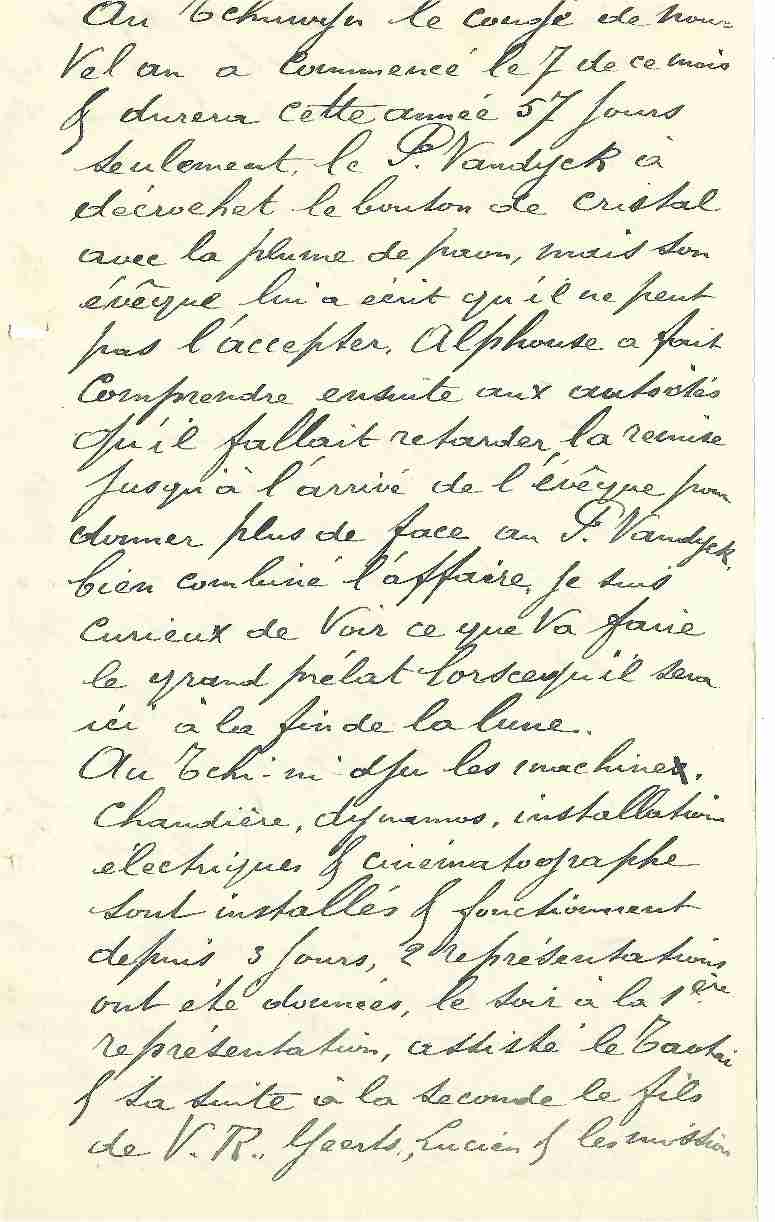 Au Tchuwofu le congé de nou-
vel an a commencé le 7 de ce mois
& durera cette année 57 jours
seulement, le P. Vandyck à
décrochet le bouton de cristal
avec la plume de paon, mais son
évêque lui a écrit qu'il ne peut
pas l'accepter. Alphonse a fait
comprendre ensuite aux autorités
qu'il fallait retarder la remise
jusqu'à l'arrivé de l'évêque pour
donner plus de face au P. Vandyck,
bien combiné l'affaire, je suis
curieux de voir ce que va faire
le grand prélat lorscequ'il sera
ici à la fin de la lune.
Au Tchi-ni-dju les machines.
Chaudière, dynamos, installation
électriques & cinématographe
sont installés & fonctionnent
depuis 3 jours, 2 représentations
ont été données, le soir à la 1ère
représentation, assisté le Taotai
& sa suite à la seconde le fils
de V. R., Geerts, Lucien & les mission